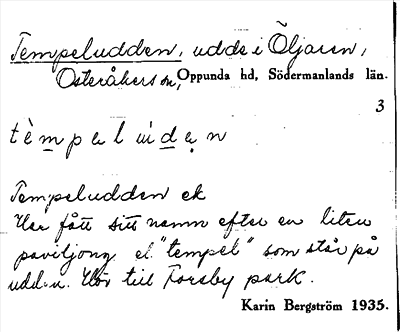 Tempeludden, udde i Öljaren,
Österåkers sn, Oppunda hd, Södermanlands län.
3
tèmpelùden
Tempeludden ek
Har fått sitt namn efter en liten
paviljong el. "tempel" som står på
udden. Hör till Forsby park.
Karin Bergström 1935.